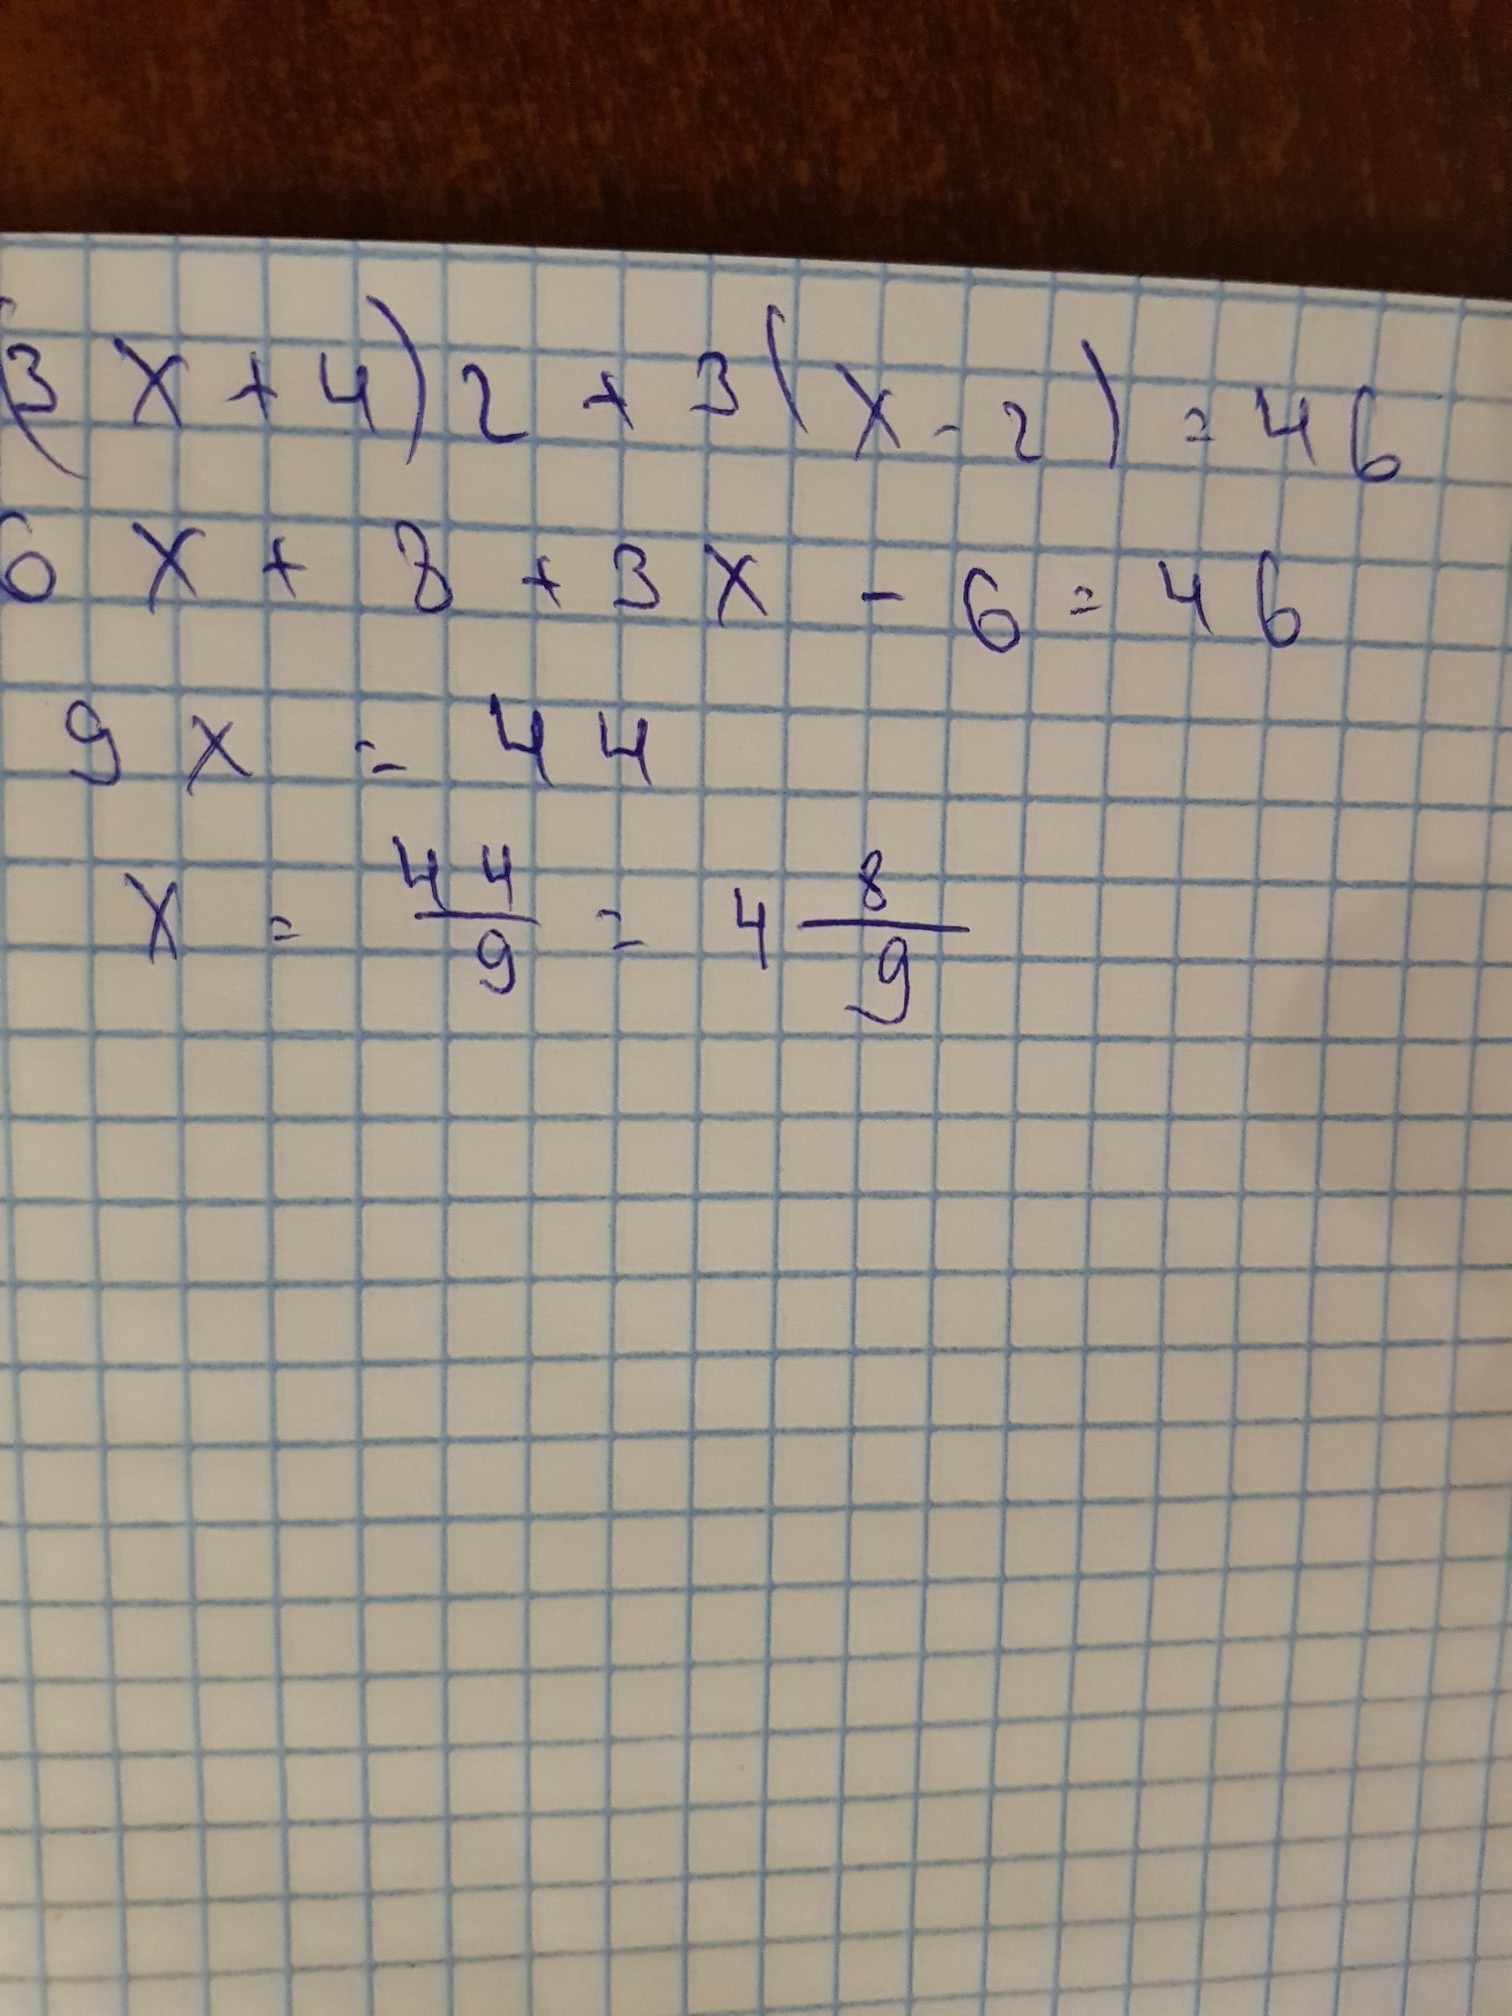 (3x+4)2+3(x-2)=46
6x+8+3x-6=46
9x=44
x=44/9=4 8/9